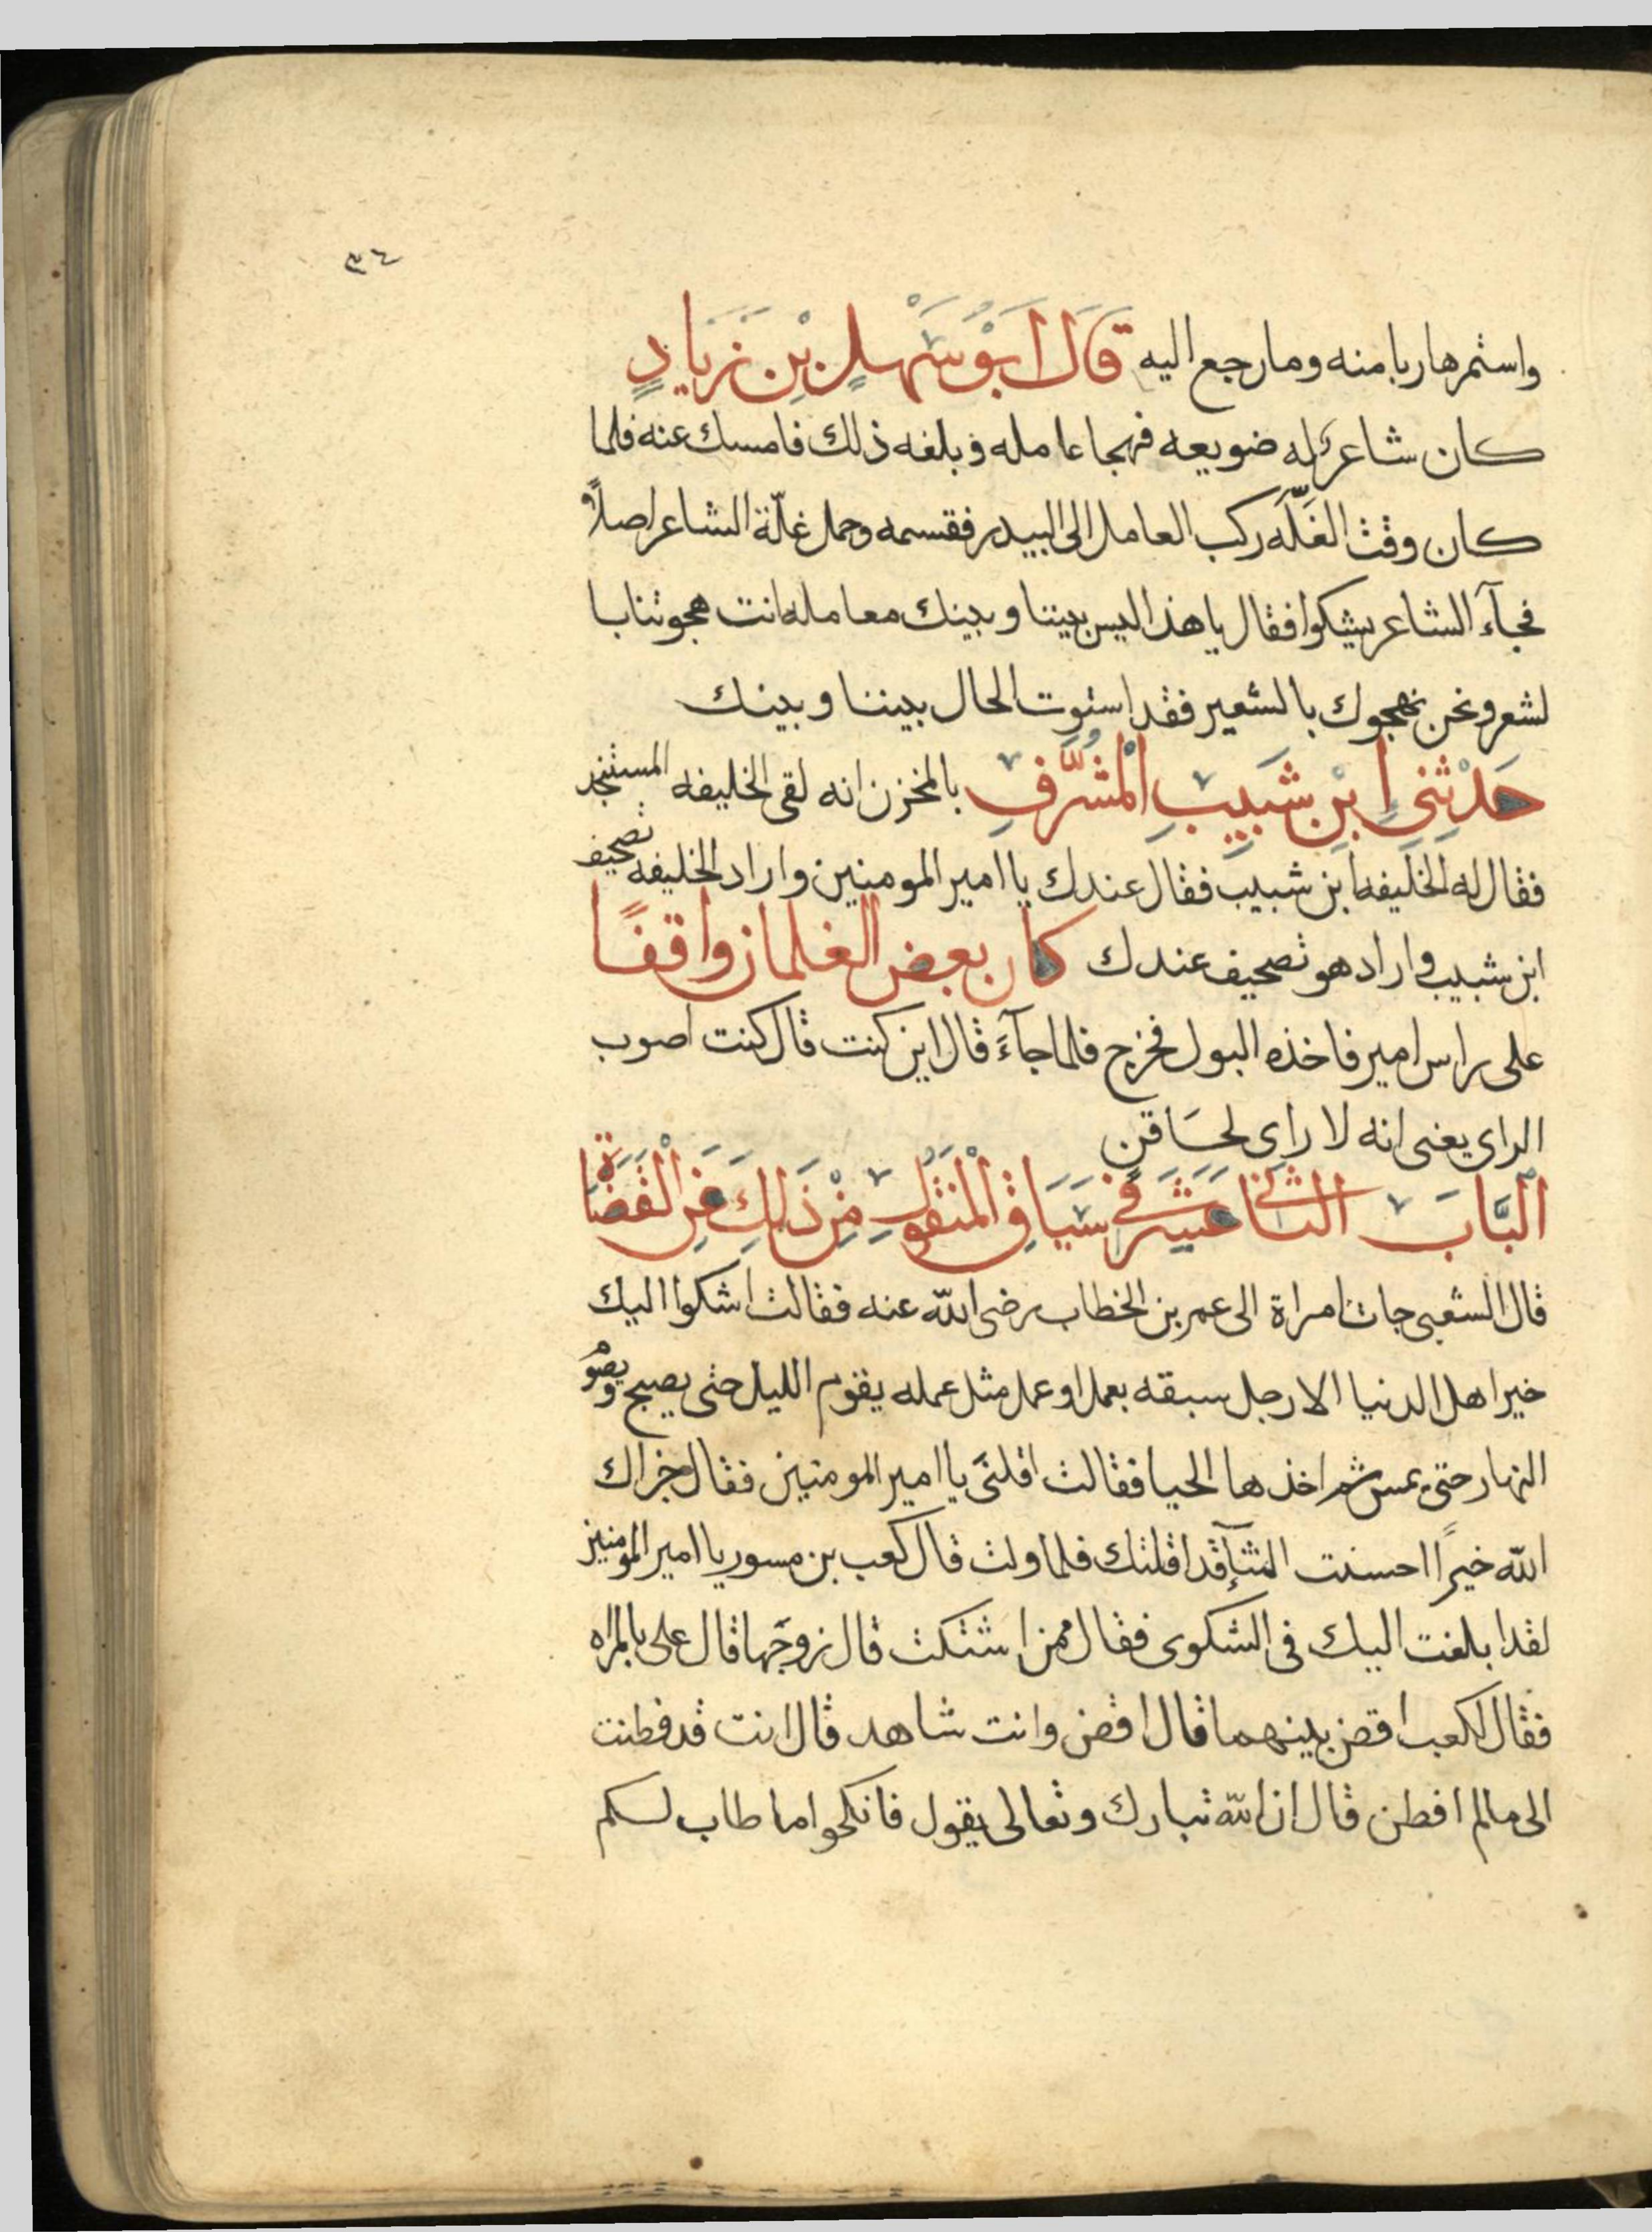 ٣٤
واستمر هاربا منه وما رجع اليه قَالَ اَبُوْ سَهْلٍ بْنِ زَيَادٍ
كان شاعر له ضويعه فهجا عامله وبلغه ذلك فامسك عنه فلما
كان وقت الغَلَّه ركب العامل الى البيدر فقسمه وحمل غلّة الشاعر اصلاً
فجآء الشاعر يشكوا فقال يا هذا اليس بيننا وبينك معامله انت هجوتنا با
لشعر ونحن نهجوك بالشعير فقد استوت الحال بيننا وبينك
حَدْثِنِى اِبْنِ شَبِيبِ الْمُشَرَّفِ بالمخزن انه لقى الخليفه المستنجد
فقال له الخليفه ابن شبيب فقال عندك يا امير المومنين واراد الخليفه تصحيف
ابن شبيب واراد هو تصحيف عندك كان بعض الغلمان واقفًا
على راس امير فاخذه البول فخرج فلما جآءَ قال اين كنت قال كنت اصوب
الراى يعنى انه لا راى لحَاقن
اَلْبَّابَ الثانى عَشَرَ فى سَيَاقِ الْمَنْقُولِ مِنْ ذَلِكَ عَنِ الْقَضَاة
قال الشعبى جات امراة الى عمر بن الخطاب رضى الله عنه فقالت اشكوا اليك
خير اهل الدنيا الا رجل سبقه بعمل او عمل مثل عمله يقوم الليل حتى يصبح ويصوم
النهار حتى يمسى ثم اخذها الحيا فقالت اقلنى يا امير المومنين فقال جزاك
الله خيرًا احسنت الثنآ قد اقلتك فلما ولت قال كعب بن مسور يا امير المومنين
لقد ابلغت اليك فى الشكوى فقال ممن اشتكت قال زوجها قال على بالمراه
فقال لكعب اقض بينهما قال اقض وانت شاهد قال انت قد فطنت
الى ما لم افطن قال ان الله تبارك وتعالى يقول فانكحوا ما طاب لكم